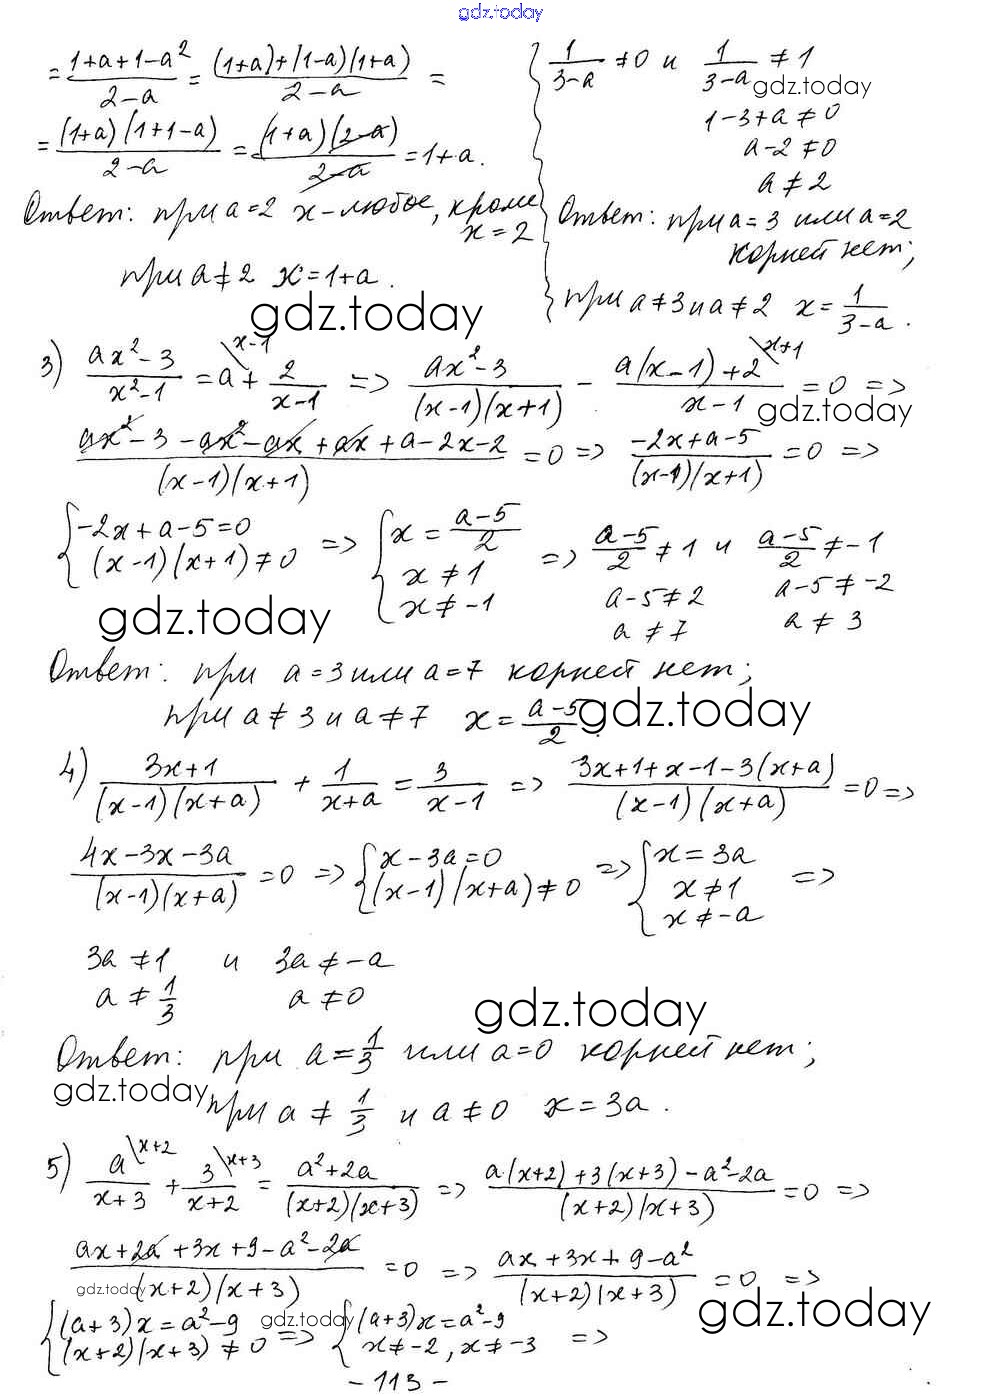 gdz.today
= (1+a+1-a²)/(2-a) = ((1+a)+(1-a)(1+a))/(2-a) =
= ((1+a)(1+1-a))/(2-a) = ((1+a)(2-a))/(2-a) = 1+a.
Ответ: при a=2 x-любое, кроме
x=2
при a≠2 x=1+a.
1/(3-a) ≠0 и 1/(3-a) ≠1
gdz.today
1-3+a≠0
a-2≠0
a≠2
Ответ: при a=3 или a=2
корней нет;
при a≠3 и a≠2 x=1/(3-a).
gdz.today
3) (ax²-3)/(x²-1) = a\x-1 + 2/(x-1) => (ax²-3)/((x-1)(x+1)) - (a(x-1)+2)/(x-1) \x+1 =0 =>
gdz.today
(ax²-3-ax²-ax+ax+a-2x-2)/((x-1)(x+1)) =0 => (-2x+a-5)/((x-1)(x+1)) =0 =>
{-2x+a-5=0 (x-1)(x+1)≠0 => {x=(a-5)/2 x≠1 x≠-1 => (a-5)/2≠1 и (a-5)/2≠-1
a-5≠2 a-5≠-2
a≠7 a≠3
gdz.today
Ответ: при a=3 или a=7 корней нет;
при a≠3 и a≠7 x=(a-5)/2.
gdz.today
4) (3x+1)/((x-1)(x+a)) + 1/(x+a) = 3/(x-1) => (3x+1+x-1-3(x+a))/((x-1)(x+a)) =0 =>
(4x-3x-3a)/((x-1)(x+a)) =0 => {x-3a=0 (x-1)(x+a)≠0 => {x=3a x≠1 x≠-a =>
3a≠1 и 3a≠-a
a≠1/3 a≠0
gdz.today
Ответ: при a=1/3 или a=0 корней нет;
gdz.today
при a≠1/3 и a≠0 x=3a.
5) a\x+2/(x+3) + 3\x+3/(x+2) = (a²+2a)/((x+2)(x+3)) => (a(x+2)+3(x+3)-a²-2a)/((x+2)(x+3)) =0 =>
(ax+2a+3x+9-a²-2a)/((x+2)(x+3)) =0 => (ax+3x+9-a²)/((x+2)(x+3)) =0 =>
gdz.today
gdz.today
{(a+3)x=a²-9 (x+2)(x+3)≠0 => {(a+3)x=a²-9 x≠-2, x≠-3 =>
gdz.today
-113-